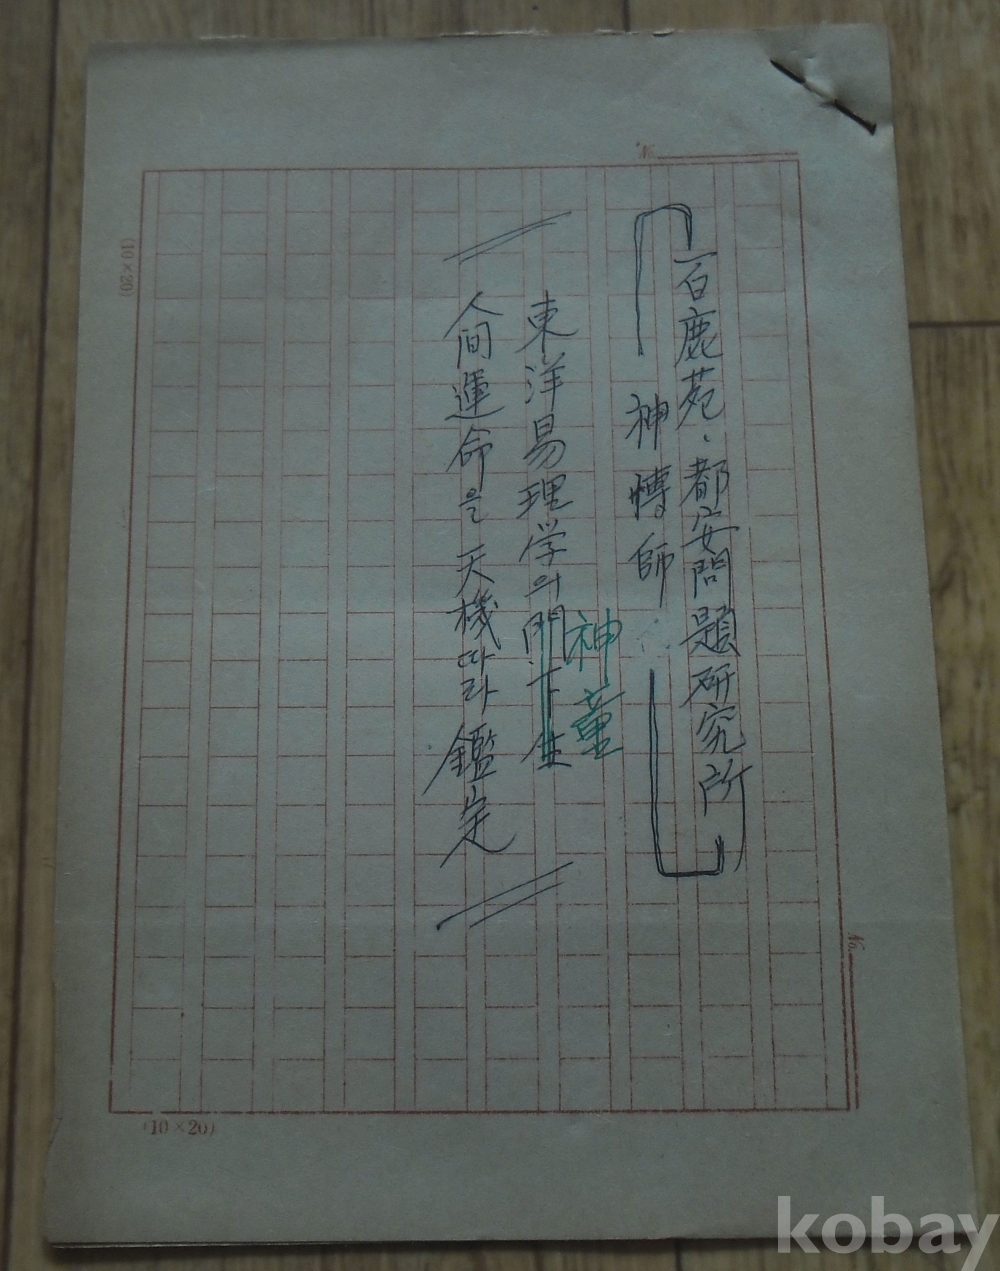 No.
百鹿苑·都安問題研究所
神博師
神童
東洋易理学의門下生
人間運命은 天機따라 鑑定
(10×20)
No.
(10×20)
kobay